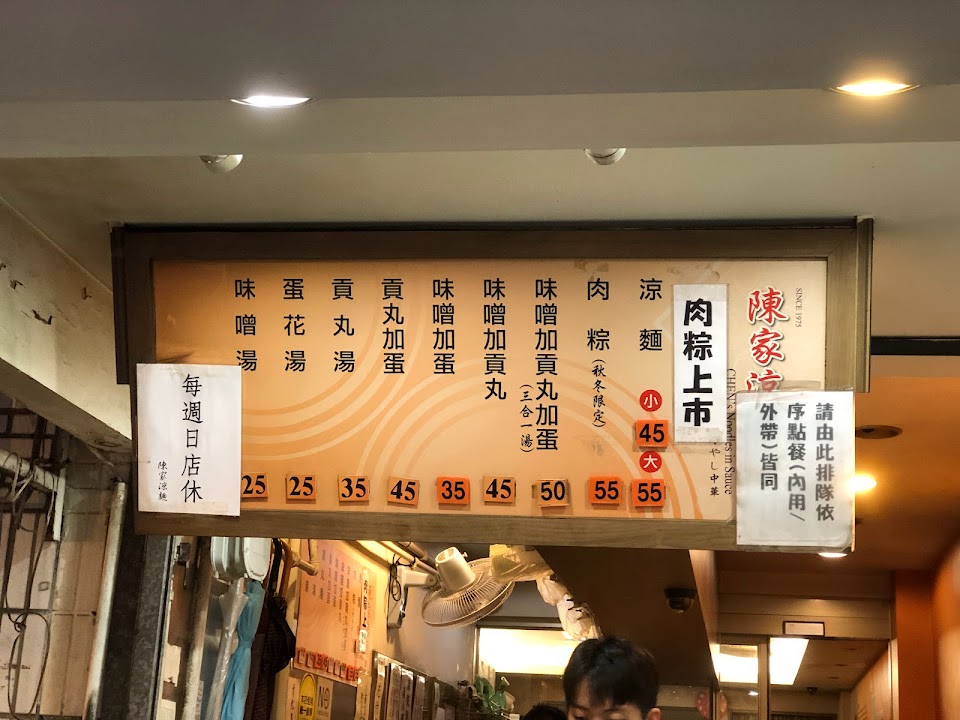 SINCE 1975
陳家涼
CHEN's Noodles in Sauce
やし中華
肉粽上市
請由此排隊依
序點餐(內用/
外帶)皆同
涼麵
小
45
大
55
肉粽(秋冬限定)
55
味噌加貢丸加蛋
(三合一湯)
50
味噌加貢丸
45
味噌加蛋
35
貢丸加蛋
45
貢丸湯
35
蛋花湯
25
味噌湯
25
每週日店休
陳家涼麵
肉粽上市